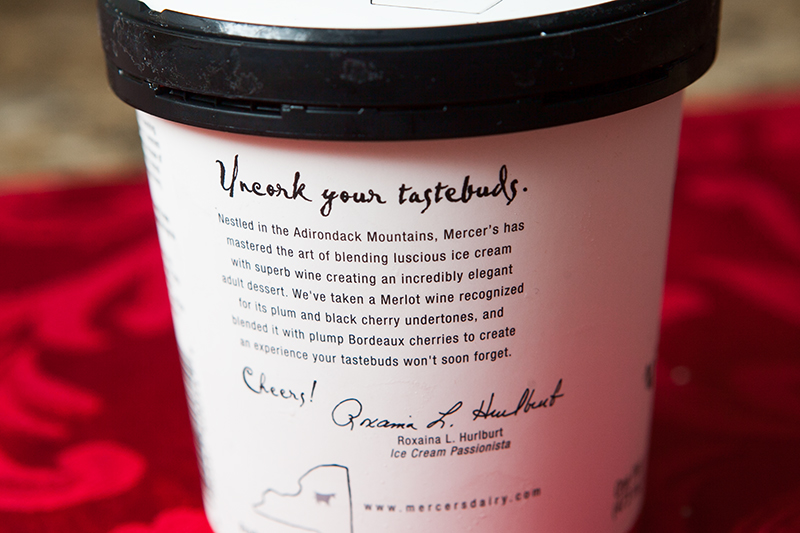 Uncork your tastebuds.
Nestled in the Adirondack Mountains, Mercer's has
mastered the art of blending luscious ice cream
with superb wine creating an incredibly elegant
adult dessert. We've taken a Merlot wine recognized
for its plum and black cherry undertones, and
blended it with plump Bordeaux cherries to create
an experience your tastebuds won't soon forget.
Cheers!
Roxaina L. Hurlburt
Roxaina L. Hurlburt
Ice Cream Passionista
www.mercersdairy.com